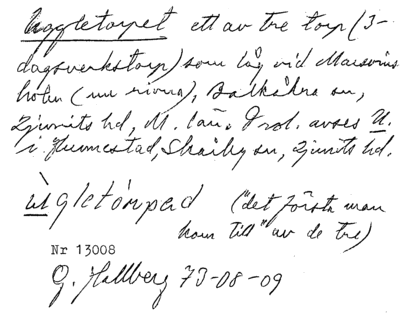 Uggletorpet ett av tre torp (3-
dagsverkstorp) som låg vid Marsvins-
holm (nu rivna), Balkåkra sn,
Ljunits hd, M. län. Trol. avses U.
i Hunnestad, Skårby sn, Ljunits hd.
ùgletórped ("det första man
kom till" av de tre)
Nr 13008
G. Hallberg 73-08-09